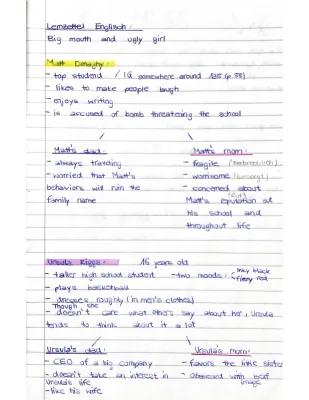 Lernzettel Englisch:
Big mouth and ugly girl
Matt Donaghy:
- top student / IQ somewhere around 135 (p.58)
- likes to make people laugh
- enjoys writing
- is accused of bomb threatening the school
Matt's dad: Matt's mom:
- always traveling - fragile
- worried that Matt's - worrisome
behaviors will ruin the - concerned about
family name Matt's reputation at
his school and
throughout life
Ursula Riggs: 16 years old
- taller high school student - two moods: inky black
fiery red
- plays basketball
- dresses roughly (in men's clothes)
Though she
- doesn't care what others say about her, Ursula
tends to think about it a lot
Ursula's dad: Ursula's mom:
- CEO of a big company - favors the little sister
- doesn't take an interest in - obsessed with
Ursula's life image
- like his wife